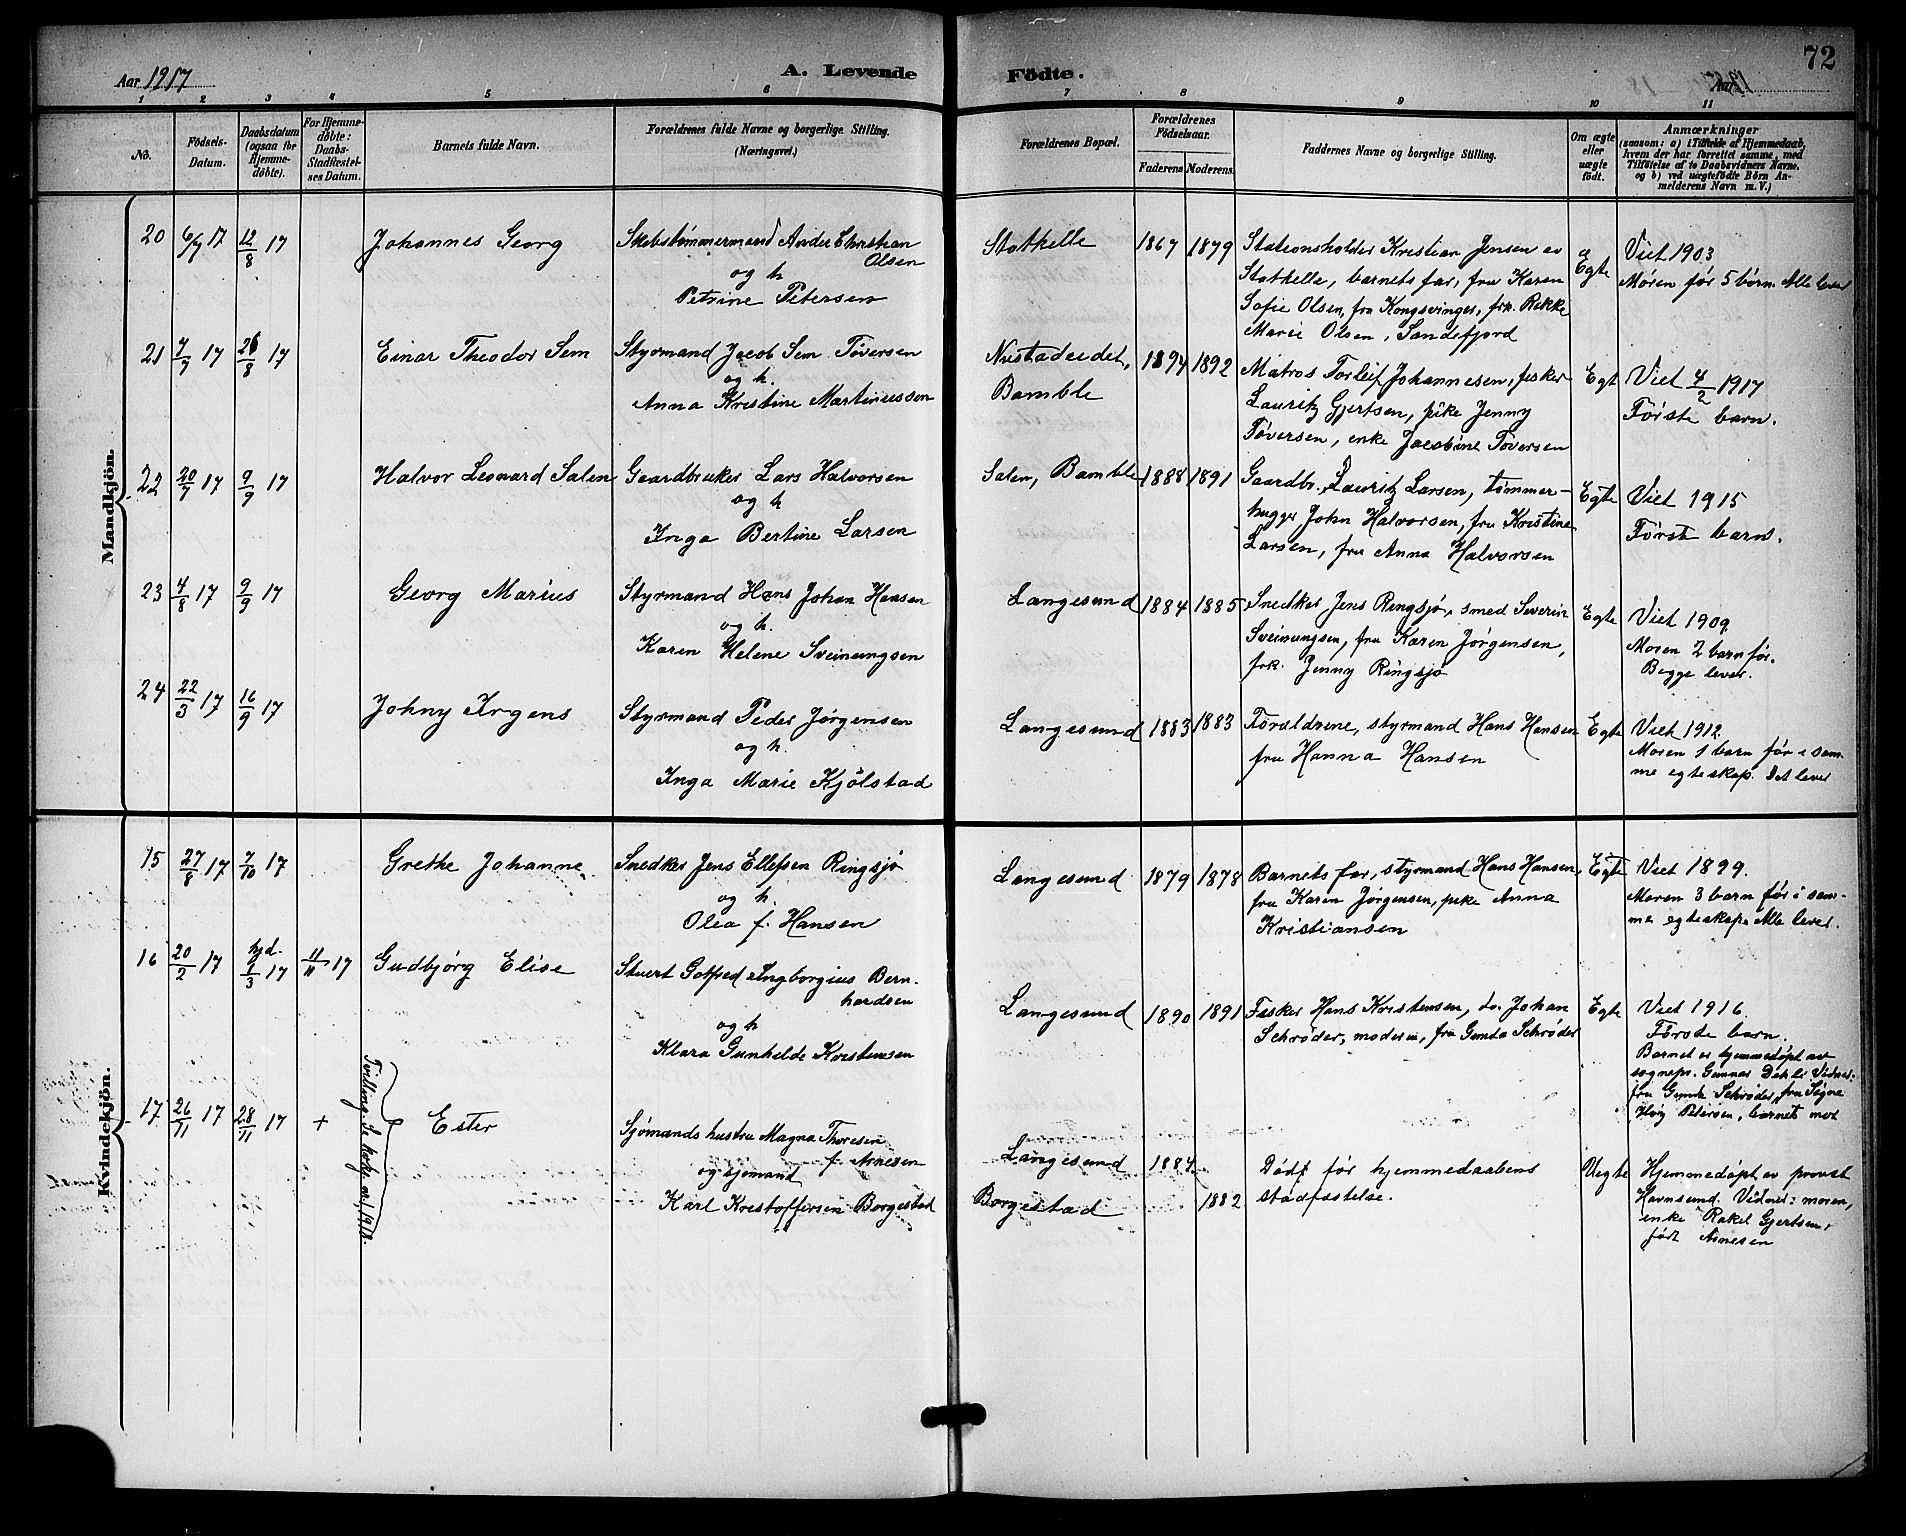 72
Aar 1917
A. Levende
Födte.
1 2 3 4 5 6 7 8 9 10 11
No.
Födsels-
Datum.
Daabsdatum
(ogsaa for
Hjemme-
döbte).
For Hjemme-
döbte:
Daabs-
Stadfæstel-
ses Datum.
Barnets fulde Navn.
Forældrenes fulde Navne og borgerlige Stilling.
(Næringsvei.)
Forældrenes Bopæl.
Forældrenes
Födselsaar.
Faderens Moderens
Faddernes Navne og borgerlige Stilling.
Om ægte
eller
uægte
födt.
Anmærkninger
(saasom: a) i Tilfælde af Hjemmedaab,
hvem der har forrettet samme, med
Tilföielse af to Daabsvidners Navne,
og b) ved uægtefödte Börn An-
melderens Navn m. V.)
Mandkjön.
20 6/7 17 12/8 17 Johannes Georg
Skibstømmermand Anders Christian
Olsen
og h
Petrine Petersen
Stathelle 1867 1879
Stationsholder Kristian Jensen av
Stathelle, barnets far, fru Karen
Sofie Olsen, fra Kongsvinger, frk. Rikke
Marie Olsen, Sandefjord
Egte
Viet 1903
Moren før 5 børn. Alle lever
21 7/7 17 26/8 17 Einar Theodor Sem
Styrmand Jacob Sem Tøversen
og h.
Anna Kristine Martinussen
Nustadeidet,
Bamble
1894 1892
Matros Torleif Johannesen, fisker
Lauritz Gjertsen, pike Jenny
Tøversen, enke Jacobine Tøversen
Egt
Viet 4/2 1917
Første barn.
22 20/7 17 9/9 17 Halvor Leonard Salen
Gaardbruker Lars Halvorsen
og h
Inga Bertine Larsen
Salen, Bamble 1888 1891
Gaardbr. Lauritz Larsen, tømmer-
hugger John Halvorsen, fru Kristine
Larsen, fru Anna Halvorsen
Egte
Viet 1915
Første barn.
23 4/8 17 9/9 17 Georg Marius
Styrmand Hans Johan Hansen
og h.
Karen Helene Sveinungsen
Langesund 1884 1885
Snedker Jens Ringsjø, smed Severin
Sveinungsen, fru Karen Jørgensen,
frk. Jenny Ringsjø
Egte
Viet 1909
Moren 2 barn før.
Begge lever.
24 22/3 17 16/9 17 Johny Irgens
Styrmand Peder Jørgensen
og h.
Inga Marie Kjölstad
Langesund 1883 1883
Forældrene, styrmand Hans Hansen
fru Hanna Hansen
Egte
Viet 1912
Moren 1 barn før i sam-
me egteskap. Det lever
Kvindekjön.
15 27/8 17 7/10 17 Grethe Johanne
Snedker Jens Ellefsen Ringsjø
og h.
Olea f. Hansen
Langesund 1879 1878
Barnets far, styrmand Hans Hansen,
fru Karen Jørgensen, pike Anna
Kristiansen
Egte
Viet 1899.
Moren 3 barn før i sam-
me egteskap. Alle lever.
16 20/2 17 hjd. 9/3 17 11/11 17 Gudbjörg Elise
Stuert Gotfred Ingborgius Bern-
hardsen
og h
Klara Gunhilde Kristensen
Langesund 1890 1891
Fisker Hans Kristensen, do. Johan
Schrøder, moderen, fru Gunda Schrøder
Egte
Viet 1916.
Første barn.
Barnet er hjemmedøpt av
sognepr. Gunnar Dehli Vidner:
fru Gunda Schrøder, fru Signe
Høig Petersen, barnets mor
17 26/11 17 28/11 17 + Ester
Sjømands hustru Magna Thoresen
f. Arnesen
og sjømand
Karl Kristoffersen Borgestad
Langesund 1884
Borgestad 1882
Død før hjemmedaabens
stadfæstelse.
Uegte
Hjemmedøpt av provst
Havnsund. Vidner: moren,
enke Rakel Gjertsen,
født Arnesen